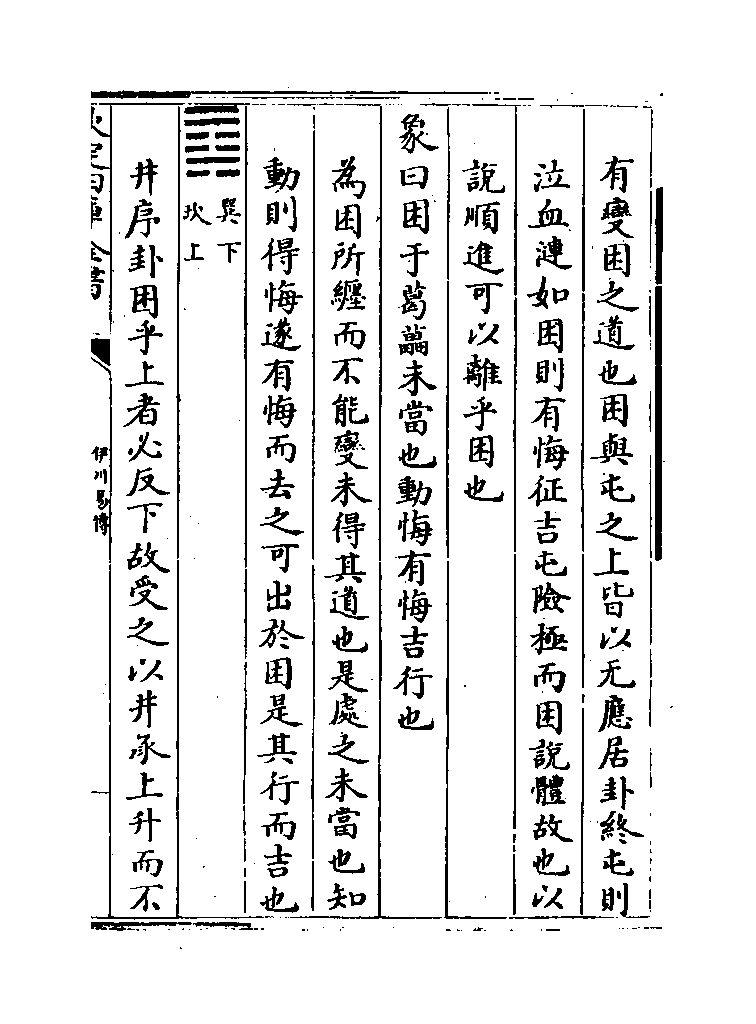 有變困之道也困與屯之上皆以无應居卦終屯則
泣血漣如困則有悔征吉屯險極而困說體故也以
說順進可以離乎困也
象曰困于葛藟未當也動悔有悔吉行也
為困所纒而不能變未得其道也是處之未當也知
動則得悔遂有悔而去之可出於困是其行而吉也
䷯
巽下
坎上
井序卦困乎上者必反下故受之以井承上升而不
欽定四庫全書
伊川易傳